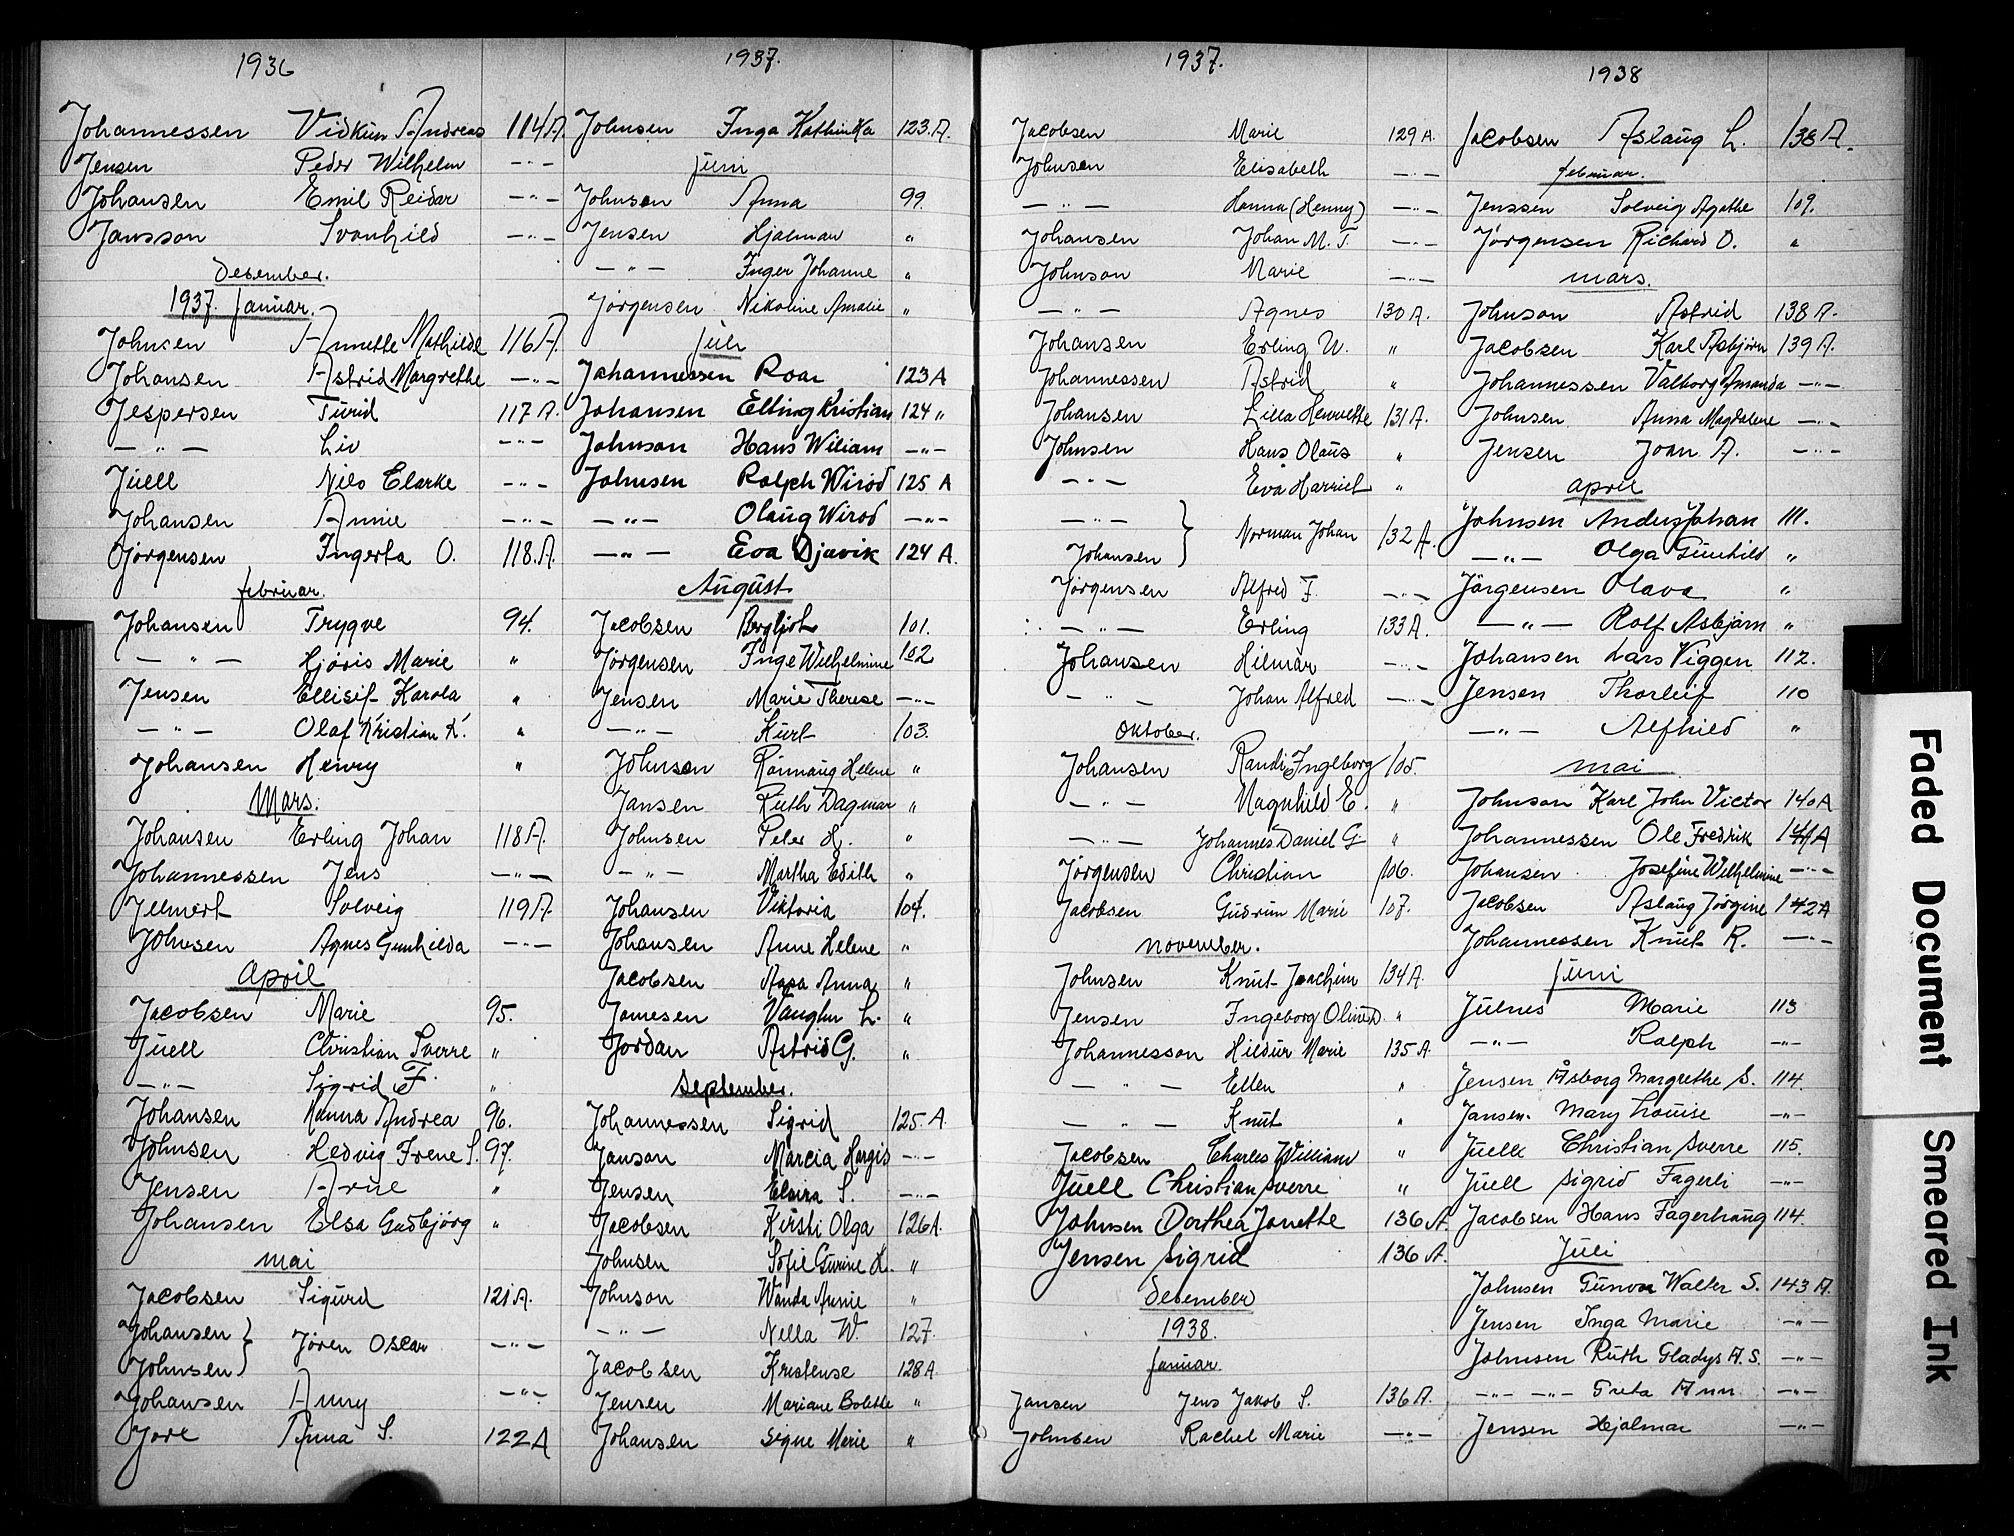 1936
Johannessen Vidkun Andreas 114A.
Jensen Peder Wilhelm -"-
Johansen Emil Reidar -"-
Jansson Svanhild -"-
Desember.
1937. Januar.
Johnsen Annette Mathilde 116A.
Johansen Astrid Margrethe -"-
Jespersen Turid 117A.
-"- Liv -"-
Juell Nils Clarke -"-
Johansen Annie -"-
Jørgensen Ingerta O. 118.A.
februar.
Johansen Trygve 94.
-"- Hjöris Marie "
Jensen Ellisif Karola "
-"- Olaf Kristian K. "
Johansen Henry "
Mars.
Johansen Erling Johan 118A.
Johannessen Jens -"-
Jellmert Solveig 119A.
Johnsen Agnes Gunhilda -"-
April
Jacobsen Marie 95.
Juell Christian Sverre "
-"- Sigrid F. "
Johansen Hanna Andrea 96.
Johnsen Hedvig Irene S. 97.
Jensen Arne "
Johansen Elsa Gudbjörg "
mai
Jacobsen Sigurd 121A.
Johansen }
Johnsen } Jören Oscar -"-
Johansen Anny -"-
Jore Anna S. 122A
1937.
Johnsen Inga Kathinka 123.A.
juni
Johnsen Anna 99.
Jensen Hjalmar "
-"- Inger Johanne "
Jørgensen Nikoline Amalie "
juli
Johannessen Roar 123A
Johansen Elling Kristian 124 "
Johnson Hans Wiliam -"-
Johnsen Ralph Wirod 125 A
-"- Olaug Wirod -"-
-"- Eva Djuvik 124 A.
August
Jacobsen Bergljot 101.
Jørgensen Inge Wilhelmine 102
Jensen Marie Therese -"-
-"- Kurt 103.
Johnsen Rannaug Helene "
Jansen Ruth Dagmar "
Johnsen Peter H. "
-"- Martha Edith "
Johansen Viktoria 104.
Johansen Anne Helene "
Jacobsen Aasa Anna "
Jamesen Vaughn L. "
Jordan Astrid G. "
September.
Johannessen Sigrid 125.A.
Janson Marcia Hargis -"-
Jensen Elvira S. -"-
Jacobsen Kirsti Olga 126A.
Johnsen Sofie Gurine H. "
Johnson Wanda Annie "
-"- Nella W. 127.
Jacobsen Kristense 128A
Jensen Mariane Bolette "
Johansen Signe Marie "
1937.
Jacobsen Marie 129A.
Johnsen Elisabeth -"-
-"- Hanna (Henny) -"-
Johansen Johan M. T. -"-
Johnson Marie -"-
-"- Agnes 130A.
Johansen Erling W. "
Johannessen Astrid "
Johansen Lilla Henriette 131A.
Johnsen Hans Olaus "
-"- Eva Harriet "
-"- }
Johansen } Norman Johan 132A.
Jørgensen Alfred F. -"-
-"- Erling 133A.
Johansen Hilmar -"-
-"- Johan Alfred -"-
Oktober.
Johansen Randi Ingeborg 105.
-"- Magnhild E. "
-"- Johannes Daniel G. "
Jørgensen Christian 106.
Jacobsen Gudrun Marie 107.
November.
Johnsen Knut Joachim 134A.
Jensen Ingeborg Oline D. "
Johannesson Hildur Marie 135A.
-"- Ellen "
-"- Knut "
Jacobsen Charles William "
Juell Christian Sverre "
Johnsen Dorthea Janette 136A.
Jensen Sigrid 136A.
Desember
1938.
Januar.
Jansen Jens Jakob S. 136A.
Johnsen Rachel Marie -"-
1938
Jacobsen Aslaug L. 138A.
februar.
Jenssen Solveig Agathe 109.
Jørgensen Richard O. "
mars.
Johnson Astrid 138A.
Jacobsen Karl Asbjörn 139A.
Johannessen Valborg Amanda -"-
Johnsen Anna Magdalene -"-
Jensen Joan A. -"-
April
Johnsen Anders Johan 111.
-"- Olga Gunhild "
Jörgensen Olava "
-"- Rolf Asbjørn "
Johansen Lars Viggen 112.
Jensen Thorleif 110
-"- Alfhild "
mai
Johnson Karl John Victor 140A
Johannessen Ole Fredrik 141A
Johansen Josefine Wilhelmine -"-
Jacobsen Aslaug Jörgine 142A
Johannessen Knut R. -"-
juni
Julnes Marie 113
-"- Ralph -"-
Jensen Åsborg Margrethe S. 114.
Jansen. Mary Louise -"-
Juell Christian Sverre 115.
Juell Sigrid Fagerli -"-
Jacobsen Hans Fagerhaug 114.
Juli
Johnsen Gunvor Walter S. 143A.
Jensen Inga Marie -"-
Johnsen Ruth Gladys A. S. -"-
-"- -"- Greta Ann -"-
Jensen Hjalmar -"-
Faded Document
Smeared Ink